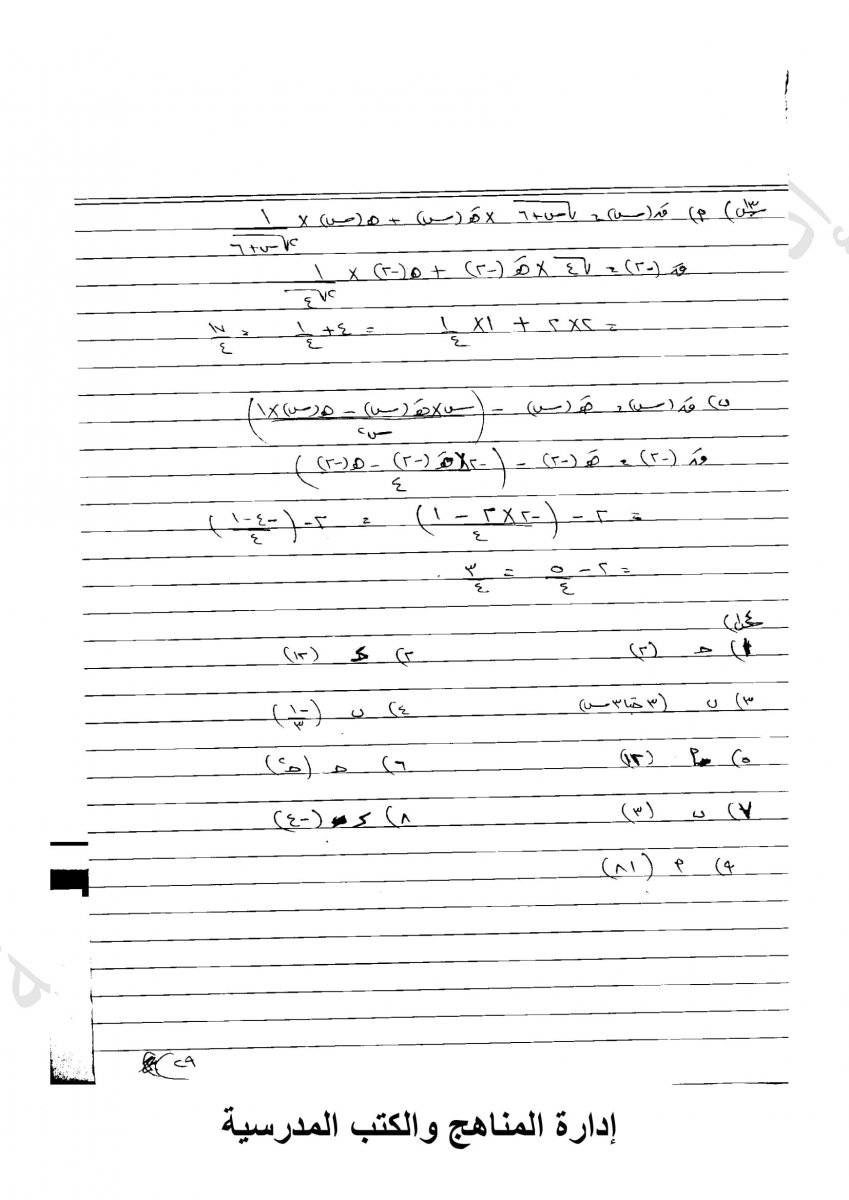 س٣) م) قَ(س) = √(س+٦) × هَ(س) + ه(س) × ١/(٢√(س+٦))
قَ(-٢) = √٤ × هَ(-٢) + ه(-٢) × ١/(٢√٤)
= ٢×٢ + ١×١/٤ = ٤ + ١/٤ = ١٧/٤
ب) قَ(س) = هَ(س) - ((س×هَ(س) - ه(س)×١)/س٢)
قَ(-٢) = هَ(-٢) - ((-٢×هَ(-٢) - ه(-٢))/٤)
= ٢ - ((-٢×٢ - ١)/٤) = ٢ - ((-٤-١)/٤)
= ٢ - ٥/٤ = ٣/٤
س٤)
١) ح (٢) ٢) د (١٢)
٣) ب (٣ جتا٣س) ٤) ب (-١/٣)
٥) م (١٢) ٦) ح (ه٢)
٧) ب (٣) ٨) د (-٤)
٩) م (٨١)
٢٩
إدارة المناهج والكتب المدرسية